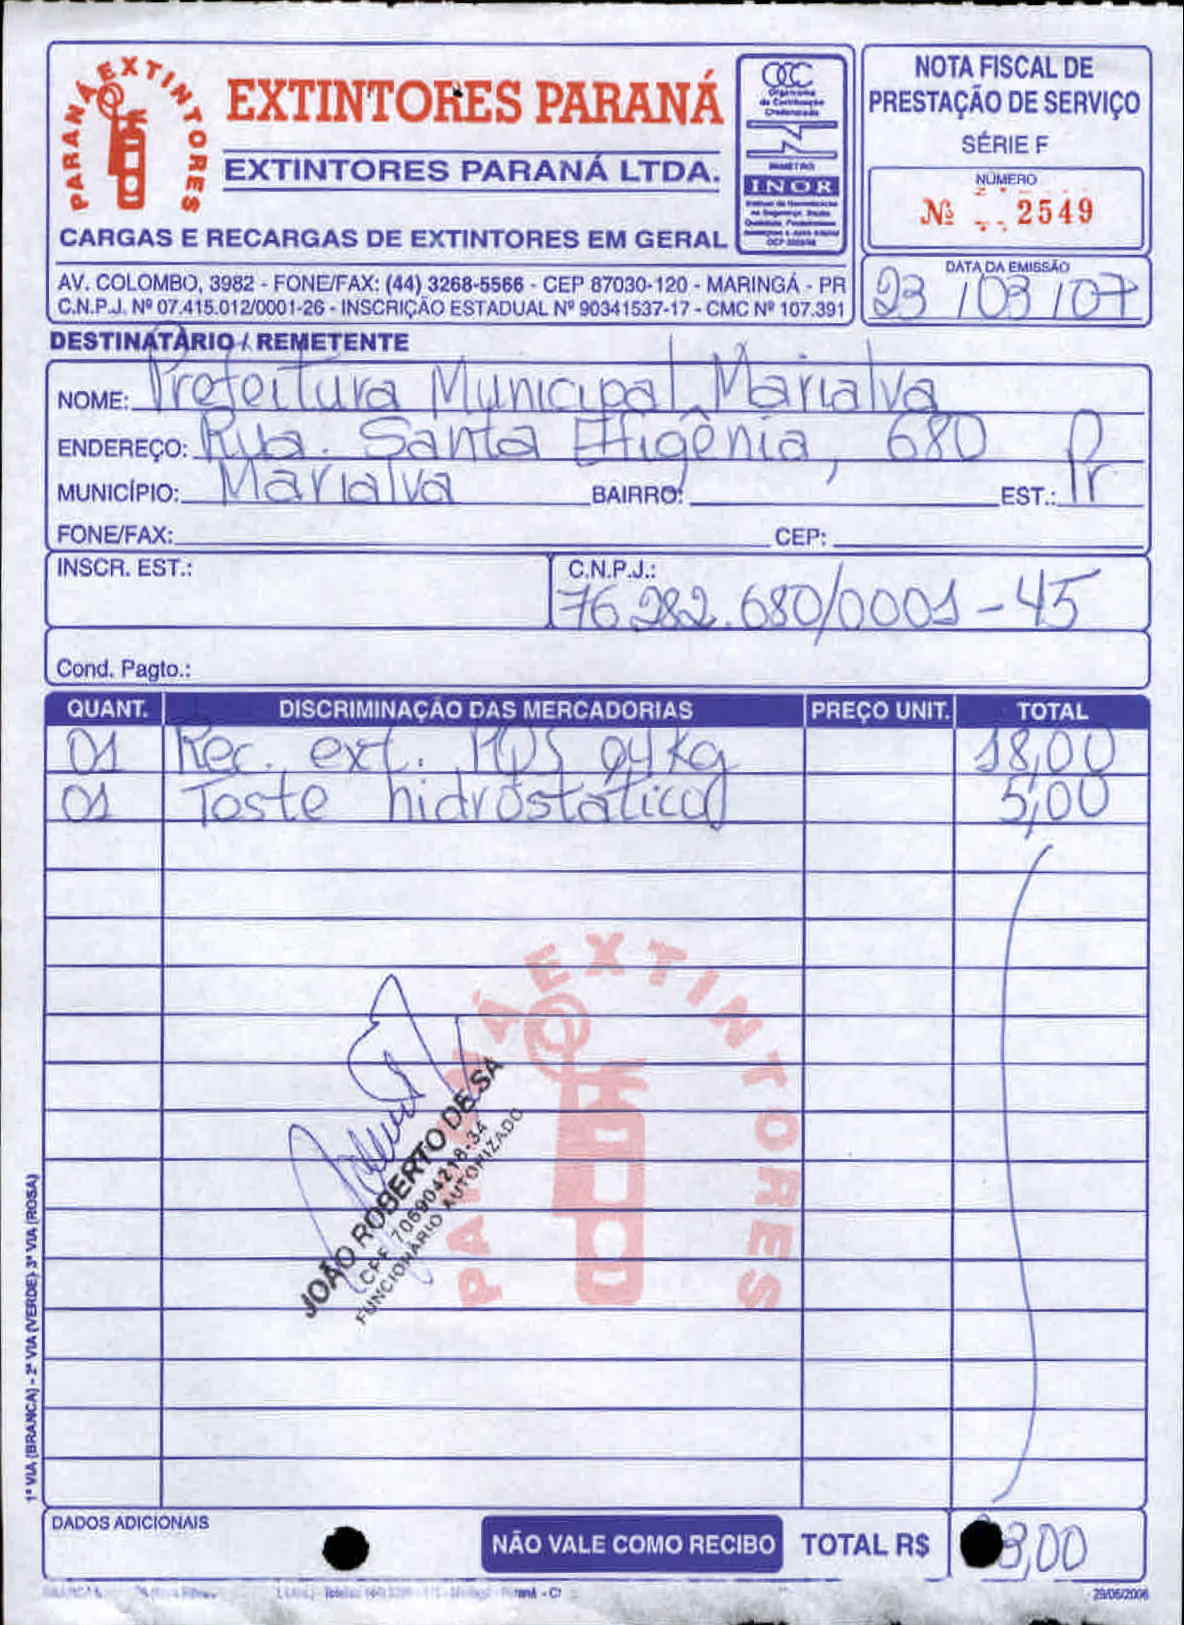 PARANÁ EXTINTORES
EXTINTORES PARANÁ
EXTINTORES PARANÁ LTDA.
CARGAS E RECARGAS DE EXTINTORES EM GERAL
OCC
Organismo
de Certificação
Credenciado
INMETRO
INOR
AV. COLOMBO, 3982 - FONE/FAX: (44) 3268-5566 - CEP 87030-120 - MARINGÁ - PR
C.N.P.J. Nº 07.415.012/0001-26 - INSCRIÇÃO ESTADUAL Nº 90341537-17 - CMC Nº 107.391
NOTA FISCAL DE
PRESTAÇÃO DE SERVIÇO
SÉRIE F
NÚMERO
Nº 2549
DATA DA EMISSÃO
23 / 03 / 07
DESTINATÁRIO / REMETENTE
NOME: Prefeitura Municipal Marialva
ENDEREÇO: Rua. Santa Efigênia, 680
MUNICÍPIO: Marialva BAIRRO: EST.: Pr
FONE/FAX: CEP:
INSCR. EST.: C.N.P.J.: 76.282.680/0001-45
Cond. Pagto.:
QUANT. DISCRIMINAÇÃO DAS MERCADORIAS PREÇO UNIT. TOTAL
01 Rec. ext. PQS 04Kg 18,00
01 Teste hidrostático 5,00
PARANÁ EXTINTORES
JOÃO ROBERTO DE SA
CPF 706904218-34
FUNCIONÁRIO AUTORIZADO
1ª VIA (BRANCA) - 2ª VIA (VERDE) 3ª VIA (ROSA)
DADOS ADICIONAIS
NÃO VALE COMO RECIBO TOTAL R$ 3,00
29/06/2006